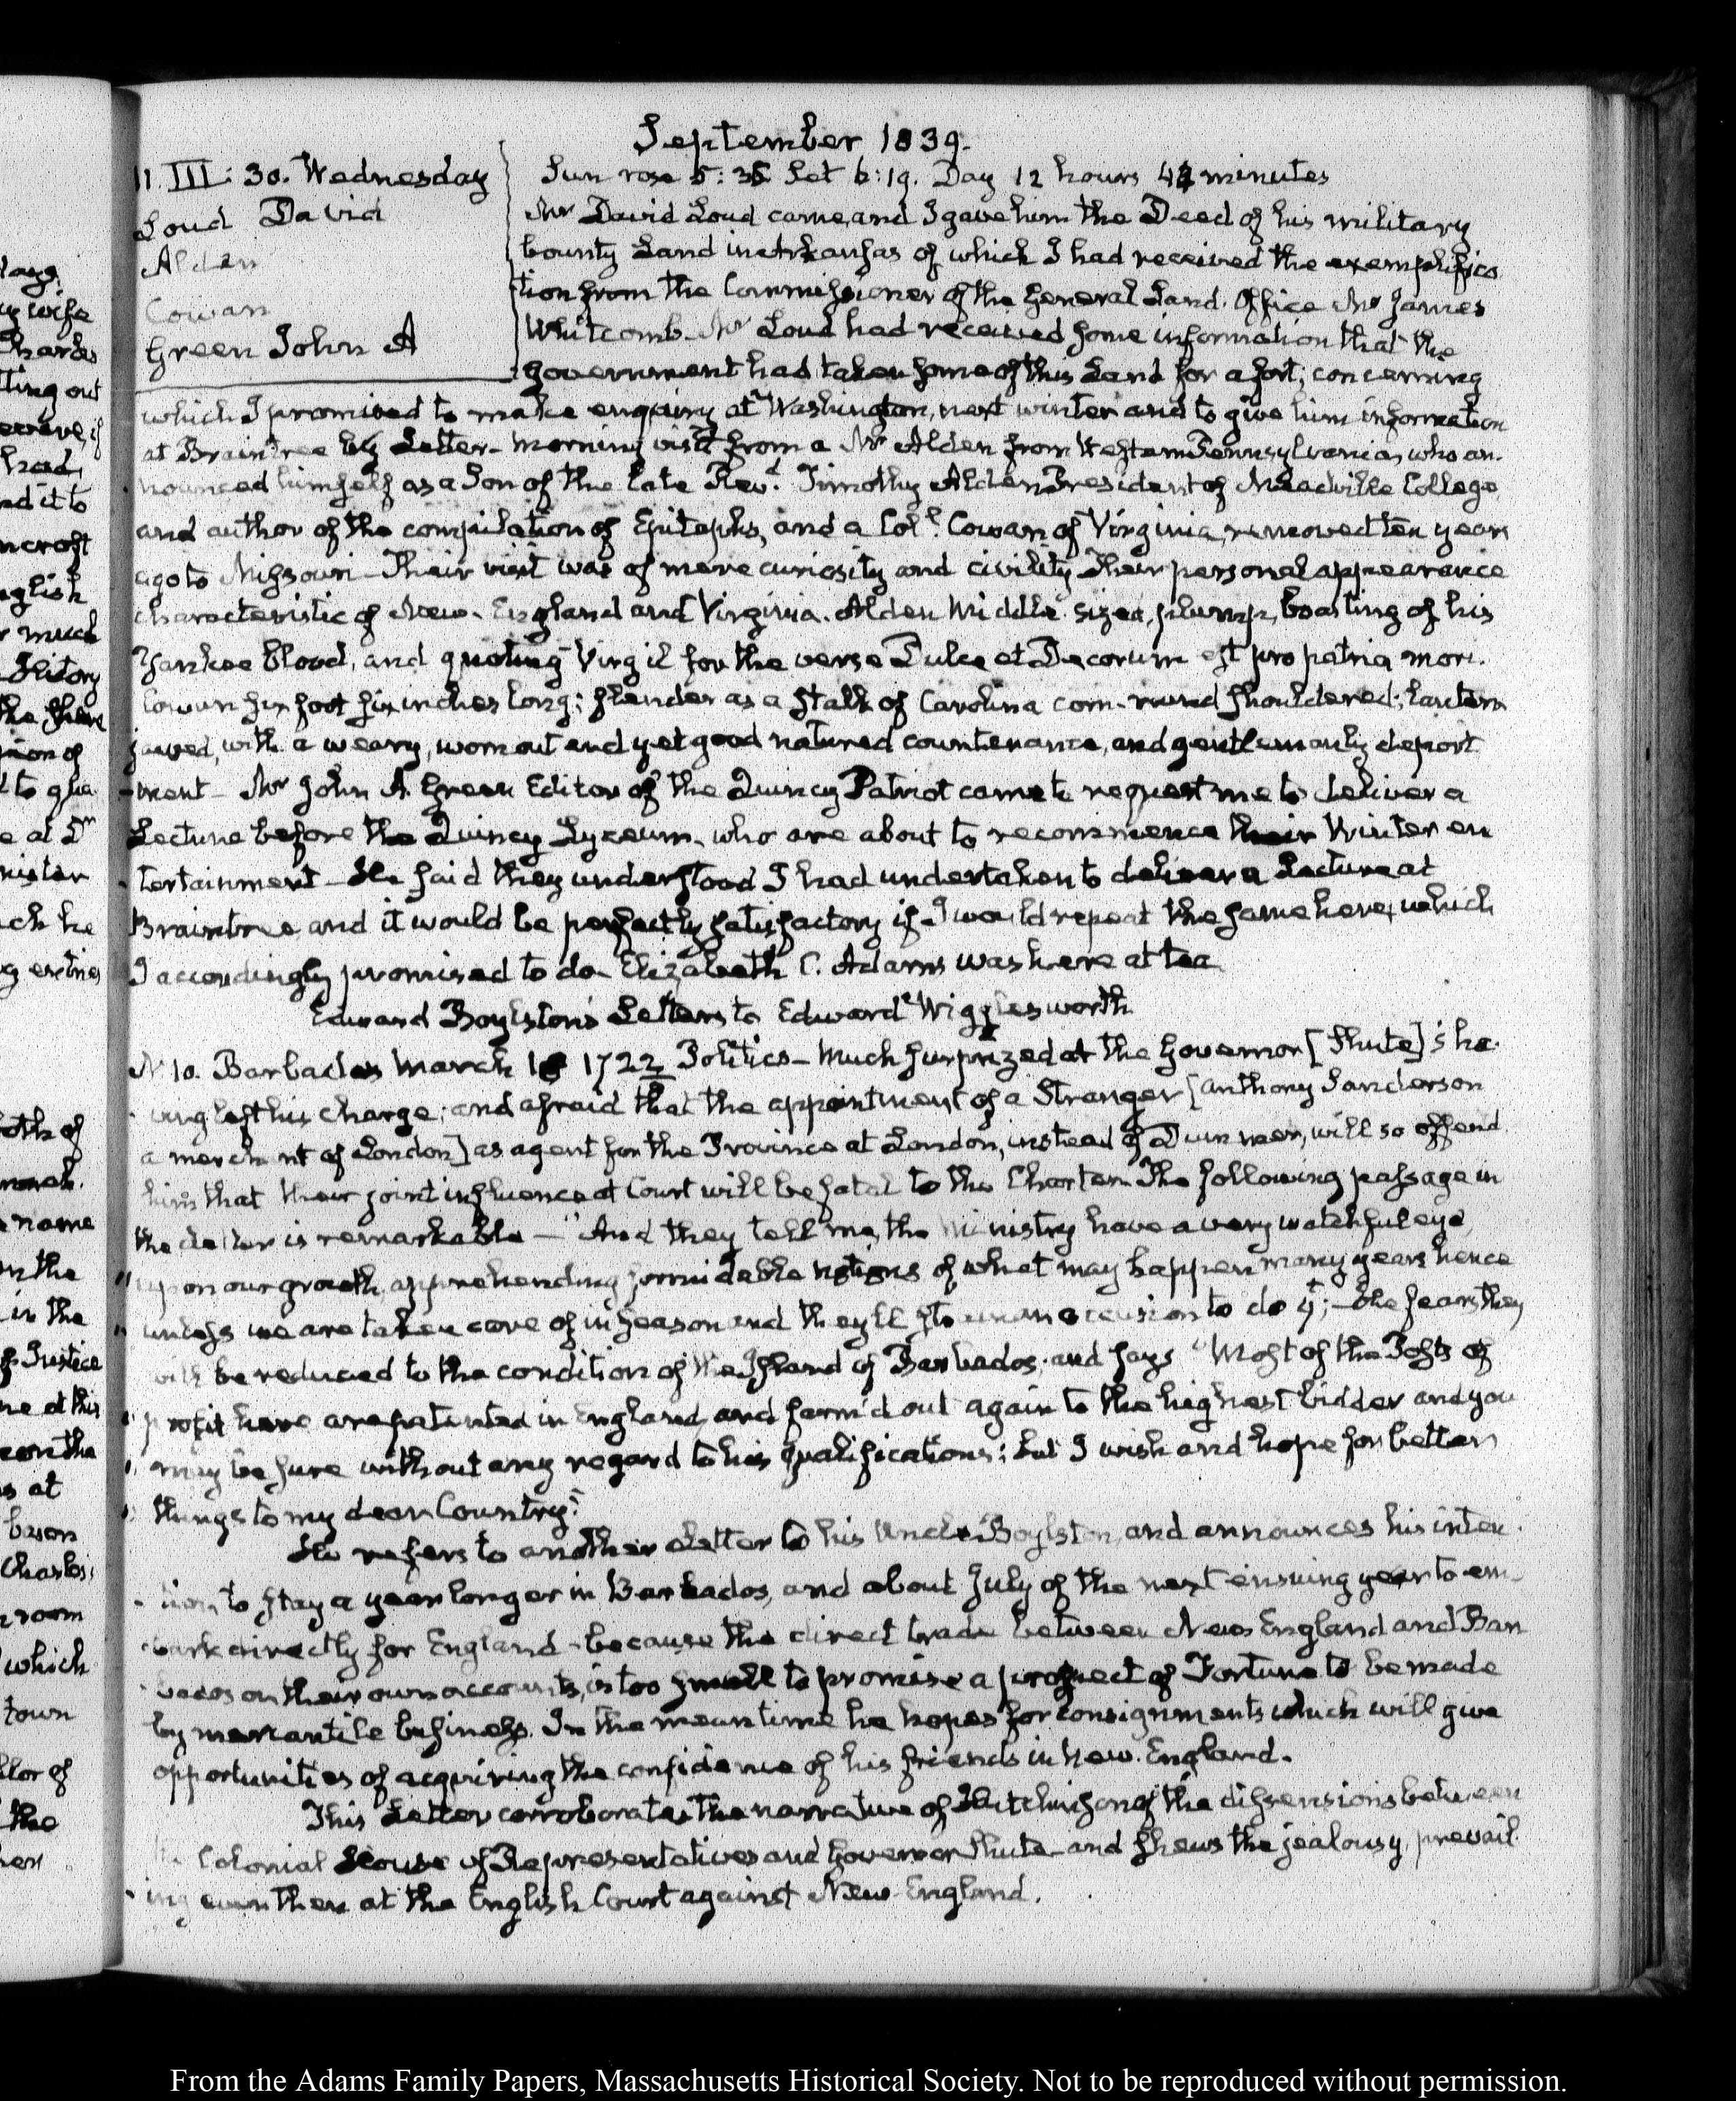 September 1839.
11. III: 30. Wednesday
Loud David
Alden
Cowan
Green John A
Sun rose 5:36 Set 6:19. Day 12 hours 42 minutes
Mr David Loud came, and I gave him the Deed of his military
bounty Land in Arkansas of which I had received the exemplifica
tion from the Commissioner of the General Land. Office Mr James
Whitcomb. Mr Loud had received some information that the
government had taken some of this Land for a fort; concerning
which I promised to make enquiry at Washington, next winter and to give him information
at Braintree by Letter. Morning visit from a Mr Alden from Western Pennsylvania, who an-
nounced himself as a Son of the late Revd. Timothy Alden President of Meadville College
and author of the compilation of Epitaphs, and a Coll. Cowan of Virginia, removed ten years
ago to Missouri. Their visit was of mere curiosity and civility. Their personal appearance
characteristic of New-England and Virginia. Alden Middle sized, plump, boasting of his
Yankee blood, and quoting Virgil for the verse Dulce et Decorum est pro patria mori.
Cowan six foot six inches long; slender as a stalk of Carolina corn. round shouldered; lantern
jawed, with a weary, worn out and yet good natured countenance, and gentlemanly deport
-ment. Mr John A. Green Editor of the Quincy Patriot came to request me to deliver a
Lecture before the Quincy Lyceum, who are about to recommence their Winter en
-tertainment. He said they understood I had undertaken to deliver a Lecture at
Braintree, and it would be perfectly satisfactory if I would repeat the same here, which
I accordingly promised to do. Elizabeth C. Adams was here at tea
Edward Boylston's Letters to Edward Wigglesworth
N. 10. Barbados March 18 1722 Politics- Much surprized at the Governor [Shute]'s ha-
-ving left his charge; and afraid that the appointment of a Stranger [Anthony Sanderson
a merchant of London] as agent for the Province at London, instead of Dummer, will so offend
him that their joint influence at Court will be fatal to the Charter. The following passage in
the Letter is remarkable — "And they tell me, the Ministry have a very watchful eye
"upon our growth, apprehending formidable notions of what may happen many years hence
"unless we are taken care of in season and they'll to occasion to do yt; He fears they
will be reduced to the condition of the Island of Barbados, and says "Most of the Posts of
"profit here are patented in England, and farm'd out again to the highest bidder and you
"may be sure without any regard to his Qualifications; but I wish and hope for better
"things to my dear Country."
He refers to another Letter to his Uncle Boylston, and announces his inten
-tion to stay a year longer in Barbados, and about July of the next ensuing year to em-
-bark directly for England - because the direct trade between New England and Bar
-bados on their own accounts, is too small to promise a prospect of Fortune to be made
by mercantile business. In the mean time he hopes for consignments which will give
opportunities of acquiring the confidence of his friends in New. England.
This Letter corroborates the narrative of Hutchinson of the dissensions between
the Colonial House of Representatives and Governor Shute and shews the jealousy prevail
-ing even then at the English Court against New-England.
From the Adams Family Papers, Massachusetts Historical Society. Not to be reproduced without permission.